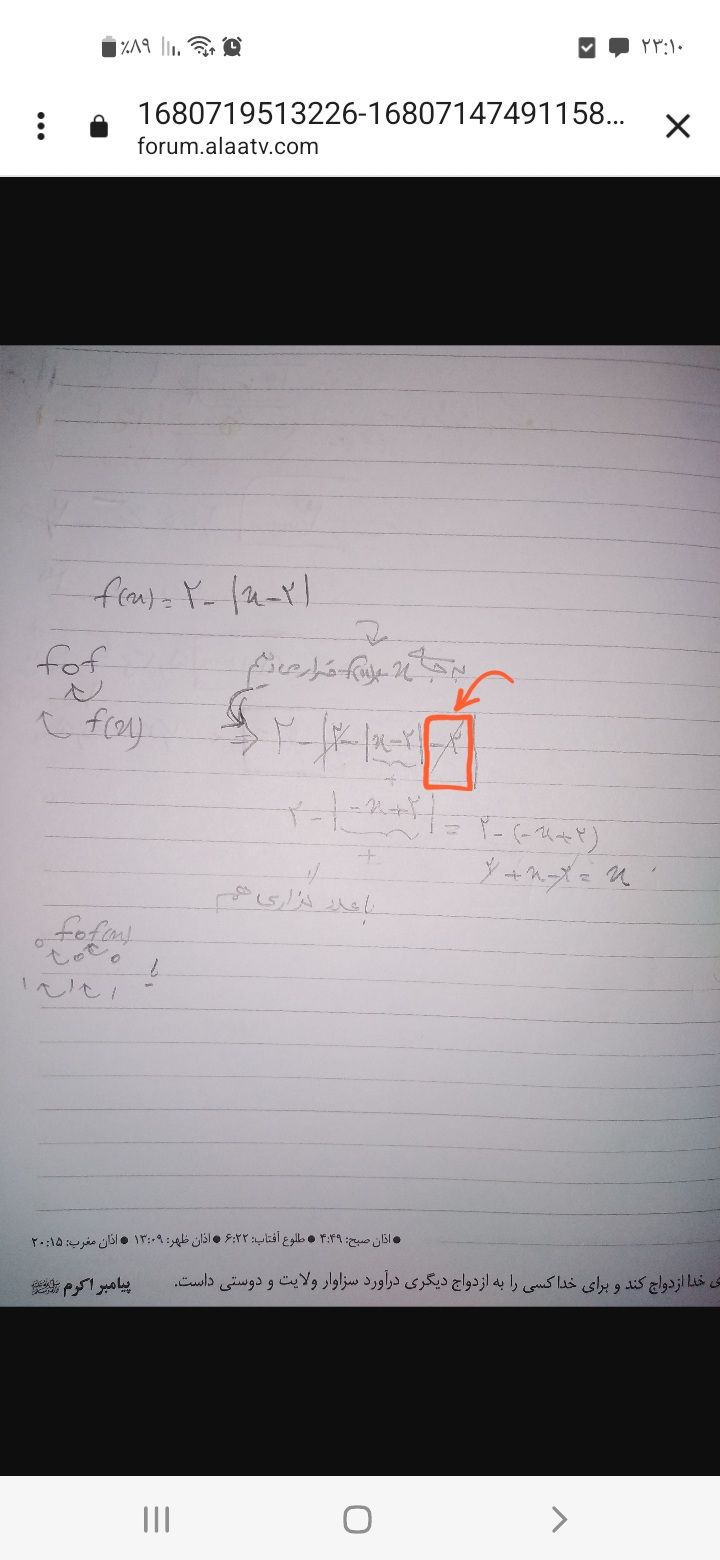 ٪۸۹ ۲۳:۱۰
1680719513226-16807147491158...
forum.alaatv.com
f(x) = ۲ - |x-۲|
fof
بجای x، f(x) قرار می‌دهیم
f(x)
⇒ ۲ - |۲ - |x-۲| - ۲|
۲ - |-x+۲| = ۲-(-x+۲)
۲+x-۲ = x
با عدد گزاری هم
fof(x)
اذان صبح: ۴:۴۹ ● طلوع آفتاب: ۶:۲۲ ● اذان ظهر: ۱۳:۰۹ ● اذان مغرب: ۲۰:۱۵
ی خدا ازدواج کند و برای خدا کسی را به ازدواج دیگری درآورد سزاوار ولایت و دوستی داست. پیامبر اکرم ﷺ